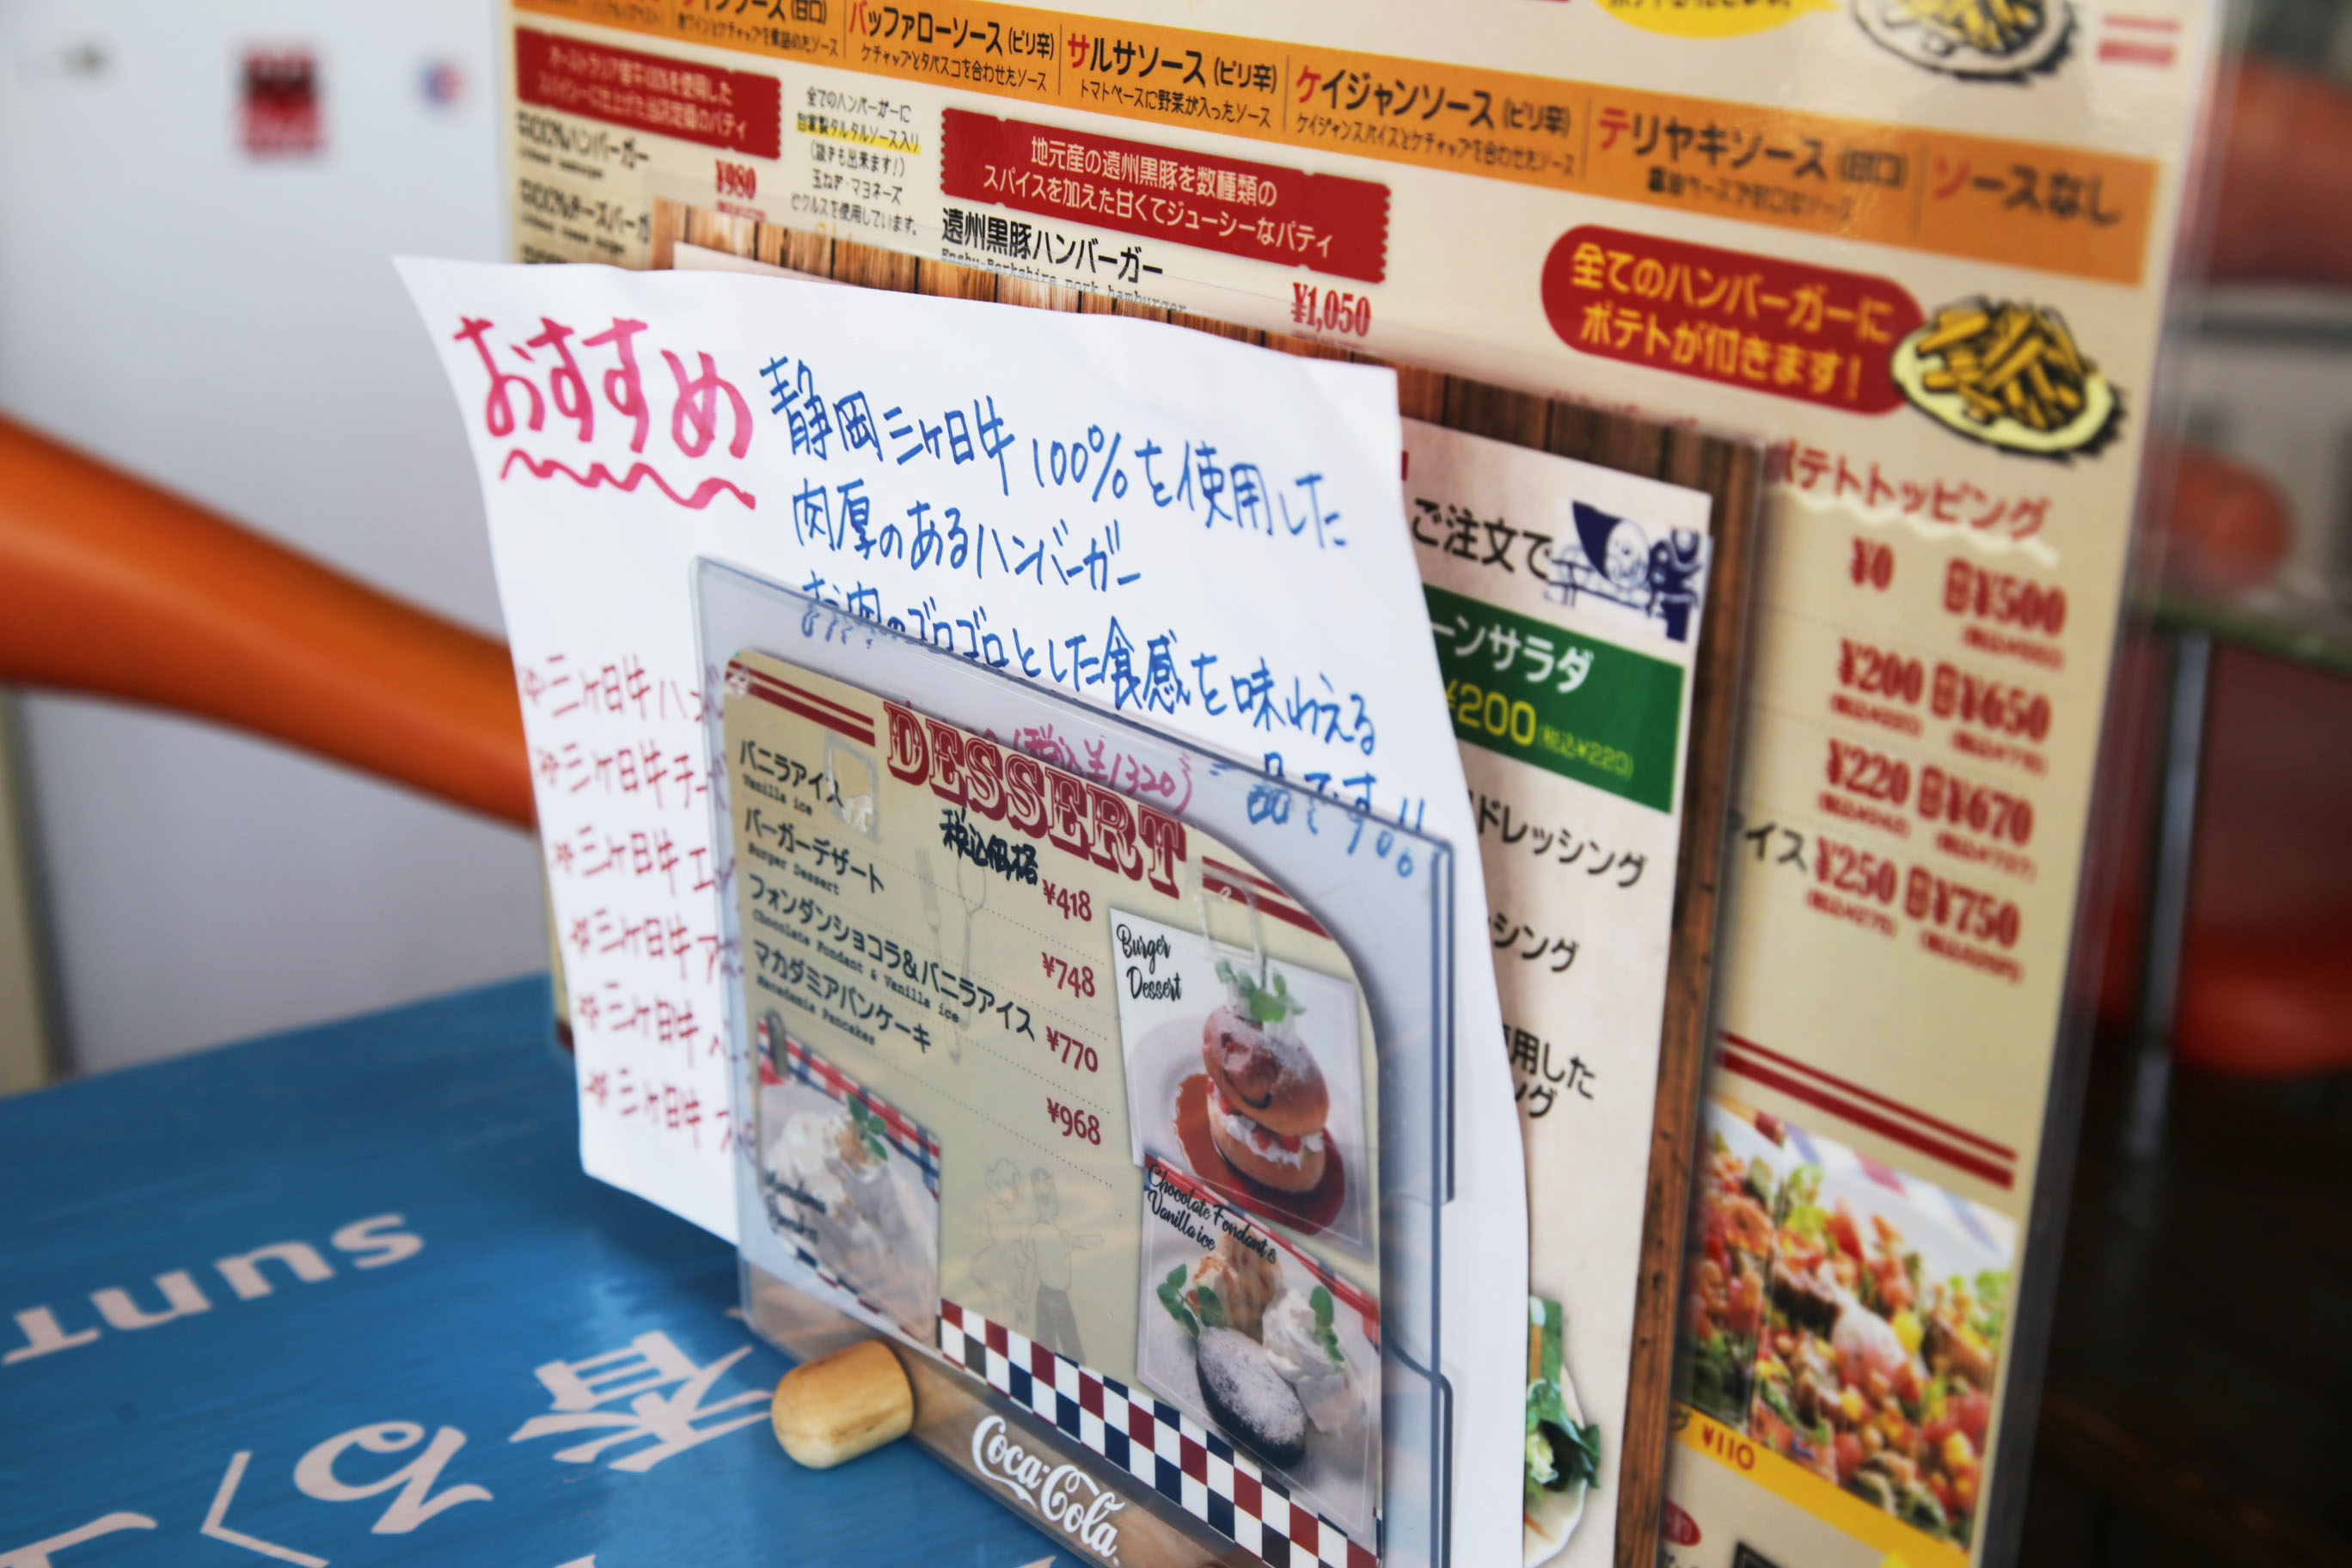 バッファローソース(ピリ辛)
ケチャップとタバスコを合わせたソース
サルサソース(ピリ辛)
トマトベースに野菜が入ったソース
ケイジャンソース(ピリ辛)
ケイジャンスパイスとケチャップを合わせたソース
テリヤキソース(甘口)
ソースなし
全てのハンバーガーに
自家製タルタルソース入り
(抜きも出来ます!)
玉ねぎ・マヨネーズ
ピクルスを使用しています。
¥980
地元産の遠州黒豚を数種類の
スパイスを加えた甘くてジューシーなパティ
遠州黒豚ハンバーガー
¥1,050
全てのハンバーガーに
ポテトが付きます!
ポテトトッピング
¥0 ¥500
¥200 ¥650
¥220 ¥670
イス ¥250 ¥750
¥110
おすすめ
静岡三ヶ日牛100%を使用した
肉厚のあるハンバーガー
お肉のゴロゴロとした食感を味わえる
一品です!!
(税込¥1320)
☆三ヶ日牛ハン
☆三ヶ日牛チー
☆三ヶ日牛
☆三ヶ日牛
☆三ヶ日牛
☆三ヶ日牛
ご注文で
ーンサラダ
¥200(税込¥220)
ドレッシング
シング
用した
ング
DESSERT
税込価格
バニラアイス
Vanilla ice
¥418
バーガーデザート
Burger Dessert
¥748
フォンダンショコラ&バニラアイス
Chocolate Fondant & Vanilla ice
¥770
マカダミアパンケーキ
Macadamia Pancakes
¥968
Burger
Dessert
Chocolate Fondant &
Vanilla ice
Coca-Cola
SUNT
香
る